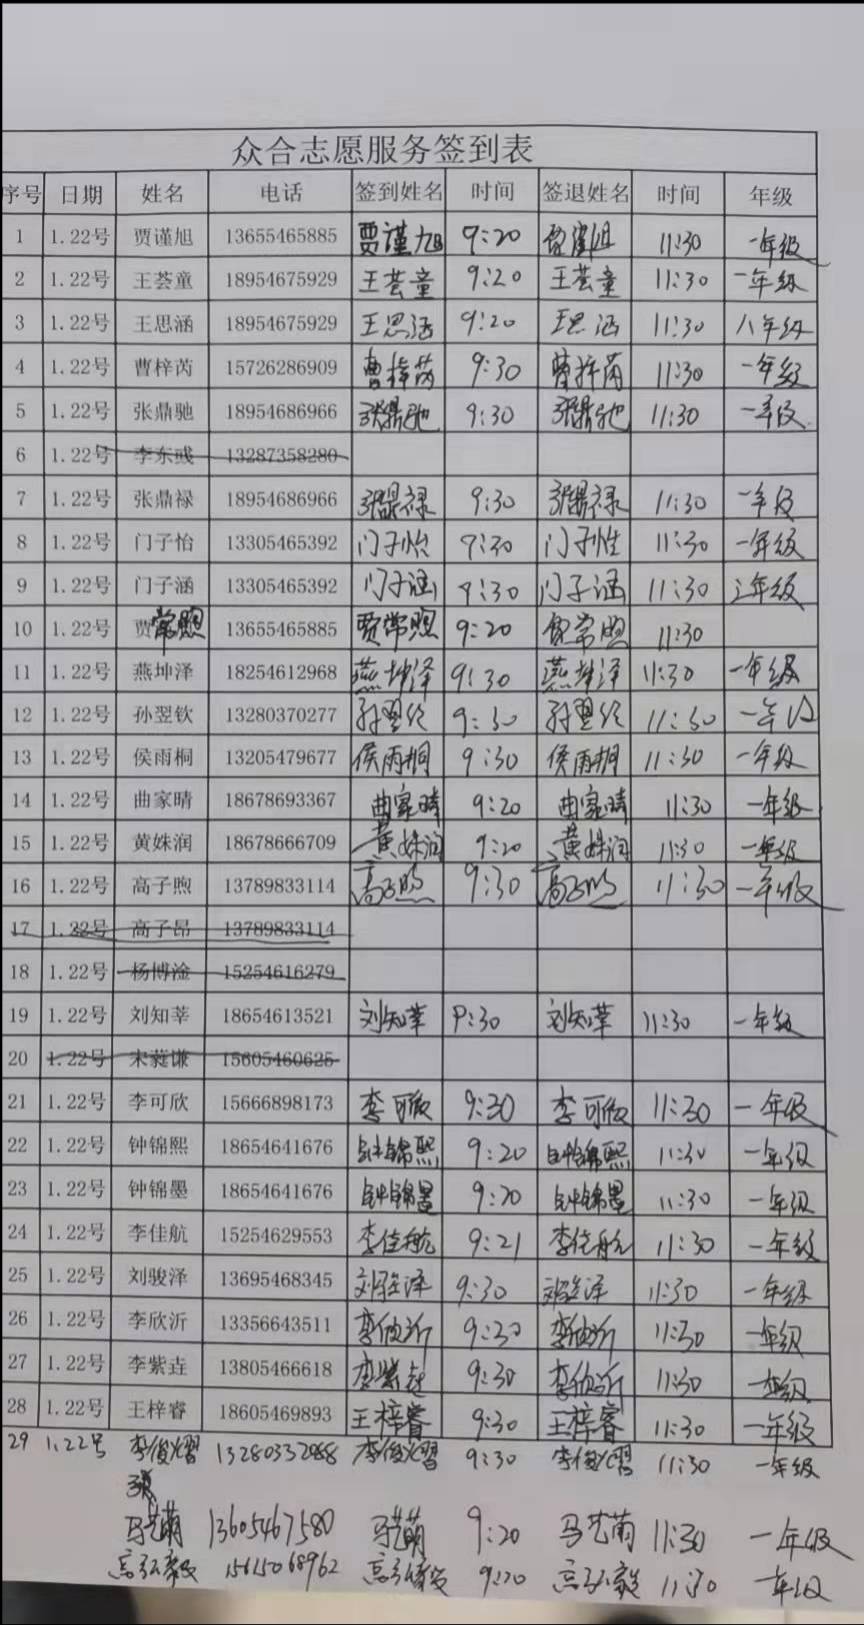 众合志愿服务签到表
序号 日期 姓名 电话 签到姓名 时间 签退姓名 时间 年级
1 1.22号 贾谨旭 13655465885 贾谨旭 9:20 贾谨旭 11:30 一年级
2 1.22号 王荟童 18954675929 王荟童 9:20 王荟童 11:30 一年级
3 1.22号 王思涵 18954675929 王思涵 9:20 王思涵 11:30 八年级
4 1.22号 曹梓芮 15726286909 曹梓芮 9:30 曹梓芮 11:30 一年级
5 1.22号 张鼎驰 18954686966 张鼎驰 9:30 张鼎驰 11:30 一年级
6 1.22号 李东彧 13287358280
7 1.22号 张鼎禄 18954686966 张鼎禄 9:30 张鼎禄 11:30 一年级
8 1.22号 门子怡 13305465392 门子怡 9:30 门子怡 11:30 一年级
9 1.22号 门子涵 13305465392 门子涵 9:30 门子涵 11:30 三年级
10 1.22号 贾常照 13655465885 贾常照 9:20 贾常照 11:30
11 1.22号 燕坤泽 18254612968 燕坤泽 9:30 燕坤泽 11:30 一年级
12 1.22号 孙翌钦 13280370277 孙翌钦 9:30 孙翌钦 11:30 一年级
13 1.22号 侯雨桐 13205479677 侯雨桐 9:30 侯雨桐 11:30 一年级
14 1.22号 曲家晴 18678693367 曲家晴 9:20 曲家晴 11:30 一年级
15 1.22号 黄姝润 18678666709 黄姝润 9:20 黄姝润 11:30 一年级
16 1.22号 高子煦 13789833114 高子煦 9:30 高子煦 11:30 一年级
17 1.22号 高子昂 13789833114
18 1.22号 杨博淦 15254616279
19 1.22号 刘知莘 18654613521 刘知莘 9:30 刘知莘 11:30 一年级
20 1.22号 宋蕤谦 15605460625
21 1.22号 李可欣 15666898173 李可欣 9:30 李可欣 11:30 一年级
22 1.22号 钟锦熙 18654641676 钟锦熙 9:20 钟锦熙 11:30 一年级
23 1.22号 钟锦墨 18654641676 钟锦墨 9:20 钟锦墨 11:30 一年级
24 1.22号 李佳航 15254629553 李佳航 9:21 李佳航 11:30 一年级
25 1.22号 刘骏泽 13695468345 刘骏泽 9:30 刘骏泽 11:30 一年级
26 1.22号 李欣沂 13356643511 李欣沂 9:30 李欣沂 11:30 一年级
27 1.22号 李紫垚 13805466618 李紫垚 9:30 李欣沂 11:30 一年级
28 1.22号 王梓睿 18605469893 王梓睿 9:30 王梓睿 11:30 一年级
29 1.22号 李俊熠 13280332088 李俊熠 9:30 李俊熠 11:30 一年级
马艺萌 13605467580 马艺萌 9:20 马艺萌 11:30 一年级
高弘毅 15615068962 高弘毅 9:20 高弘毅 11:30 一年级